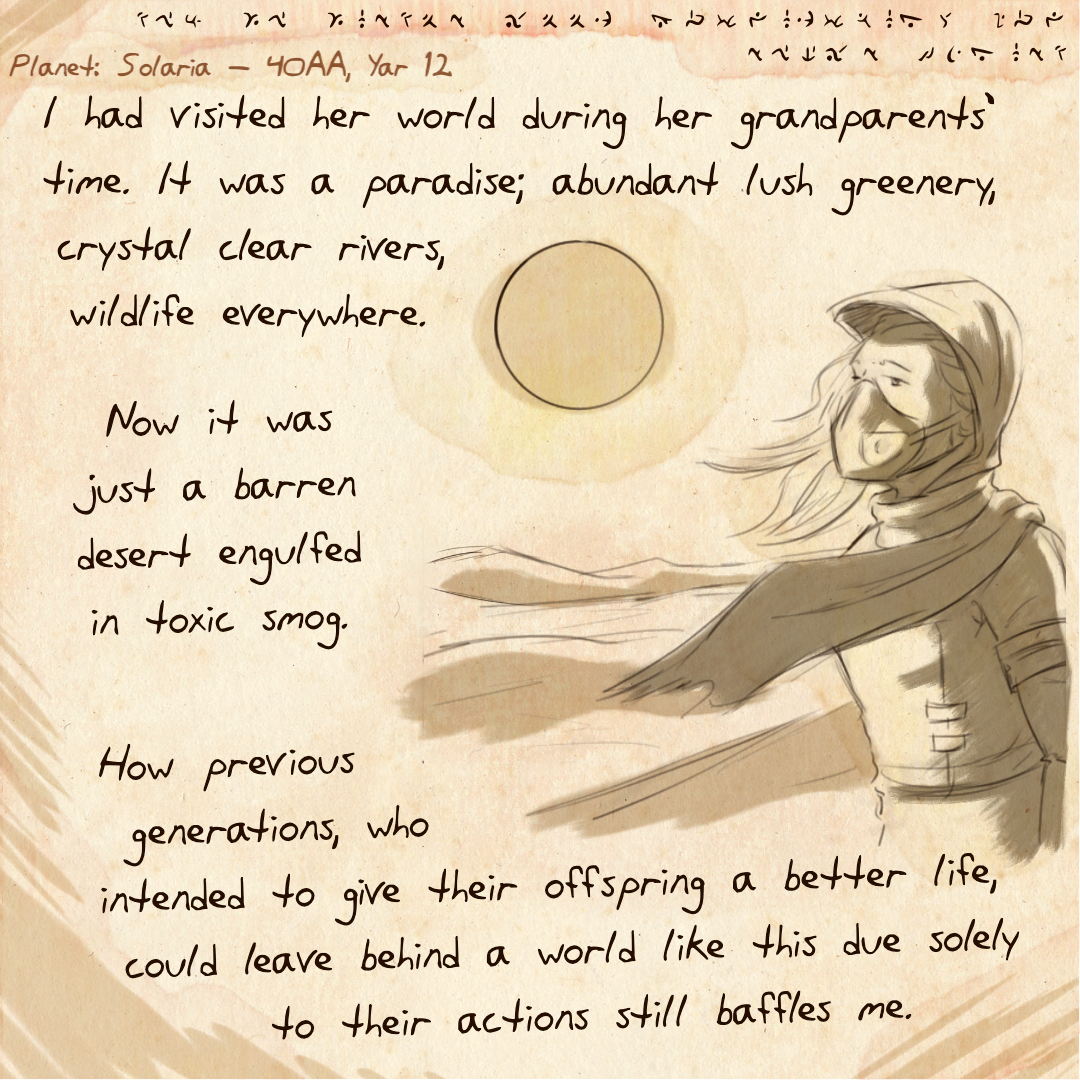 Planet: Solaria — 40AA, Yar 12
I had visited her world during her grandparents'
time. It was a paradise; abundant lush greenery,
crystal clear rivers,
wildlife everywhere.
Now it was
just a barren
desert engulfed
in toxic smog.
How previous
generations, who
intended to give their offspring a better life,
could leave behind a world like this due solely
to their actions still baffles me.